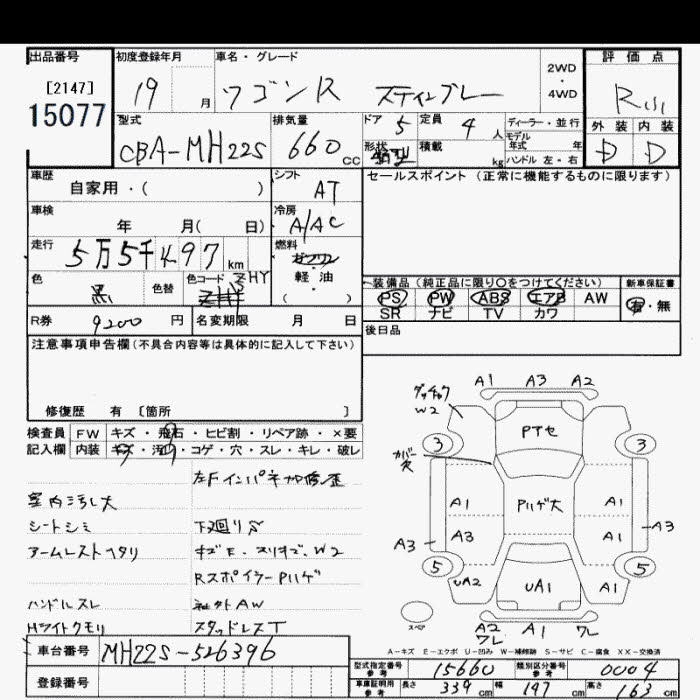 出品番号
[2147]
15077
初度登録年月
19 月
車名・グレード
ワゴンR スティングレー
2WD
・
4WD
評価点
R
型式
CBA-MH22S
排気量
660 cc
ドア 5
形状
定員 4 人
積載 kg
ディーラー・並行
モデル
年式 年
ハンドル 左・右
外装 内装
D D
車歴
自家用・( )
シフト
AT
セールスポイント (正常に機能するものに限ります)
車検
年 月( 日)
冷房
A/AC
走行
5万5千497 km
燃料
ガソリン
軽・油
( )
色
黒
色替
色コード ZHY
装備品 (純正品に限り○をつけてください)
新車保証書
PS PW ABS エアB AW
有・無
SR ナビ TV カワ
R券 9200 円
名変期限 月 日
後日品
注意事項申告欄 (不具合内容等は具体的に記入して下さい)
修復歴 有 〔箇所 〕
検査員
記入欄
FW キズ・飛石・ヒビ割・リペア跡・×要
内装 キズ・汚れ・コゲ・穴・スレ・キレ・破レ
左Fインパネ加修歪
室内汚レ大
シートシミ
下廻りS
アームレストヘタリ
キズE、スリキズ、W2
RスポイラーPハゲ
ハンドルスレ
社外AW
Hライトクモリ
スタッドレスT
W2
A1 A3 A2
カバー欠
3 3
PTセ
A1 Pハゲ大 A1
A3 A3 A1 A3
5 5
UA2 UA1 A1
スペア
A2 A1 ワレ
ワレ
A-キズ E-エクボ U-凹み W-補修跡 S-サビ C-腐食 XX-交換済
車台番号 MH22S-526396
登録番号
型式指定番号
参考
15660
類別区分番号
参考
0004
車庫証明用
参考
長さ 339 cm 幅 147 cm 高さ 163 cm